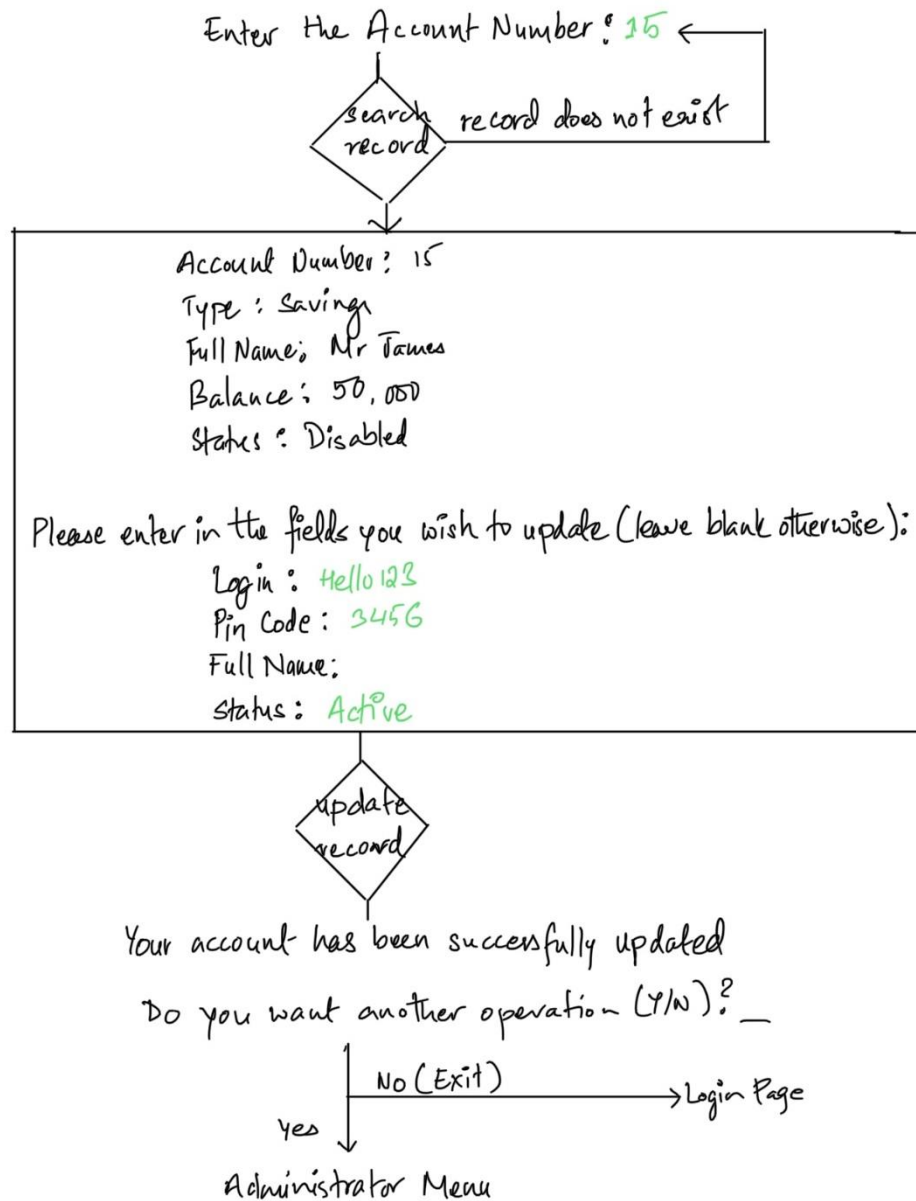 Enter the Account Number: 15
search record
record does not exist
Account Number: 15
Type: Saving
Full Name: Mr James
Balance: 50,000
Status: Disabled
Please enter in the fields you wish to update (leave blank otherwise):
Login: Hello123
Pin Code: 3456
Full Name:
Status: Active
update
record
Your account has been successfully updated
Do you want another operation (Y/N)? _
No (Exit)
Login Page
Yes
Administrator Menu